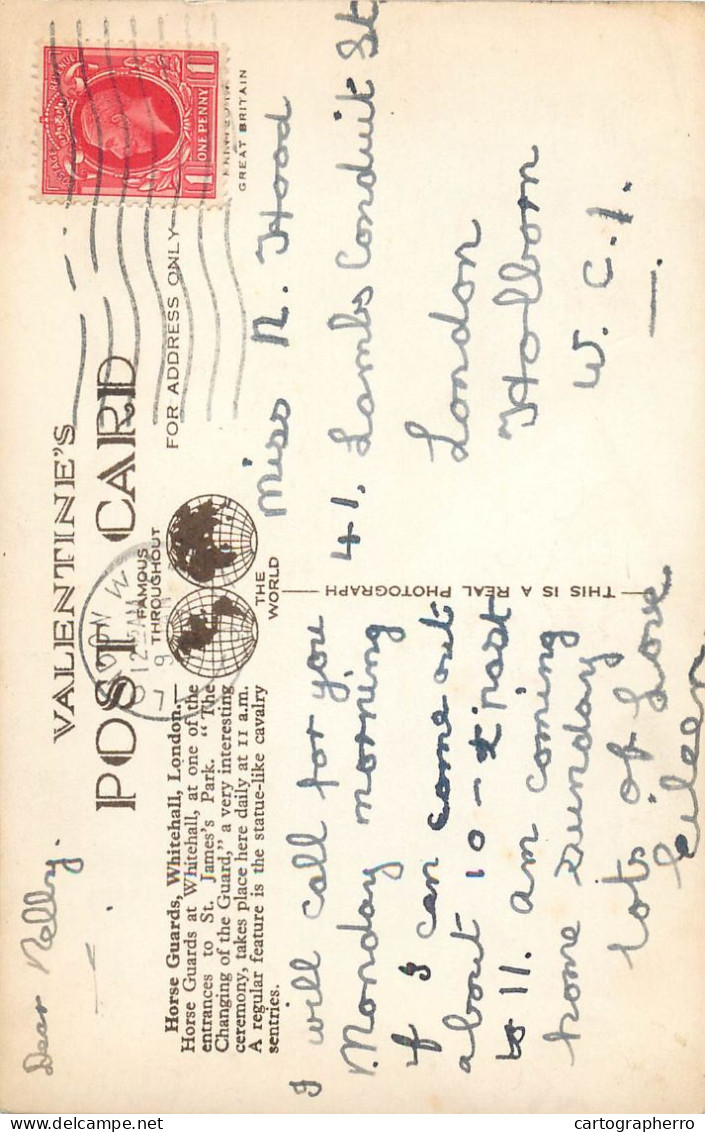 VALENTINE'S
POST CARD
FAMOUS
THROUGHOUT
THE
WORLD
FOR ADDRESS ONLY
GREAT BRITAIN
POSTAGE REVENUE
1 ONE PENNY 1
LONDON W
12 AM
9
Horse Guards, Whitehall, London.—
Horse Guards at Whitehall, at one of the
entrances to St. James's Park. "The
Changing of the Guard," a very interesting
ceremony, takes place here daily at 11 a.m.
A regular feature is the statue-like cavalry
sentries.
THIS IS A REAL PHOTOGRAPH
Dear Nelly.
I will call for you
Monday morning
if I can come out
about 10-½ past
to 11. am coming
home Sunday
lots of love
Eileen.
Miss N. Hood
41. Lambs Conduit St
London
Holborn
W.C.1.
cartographerro